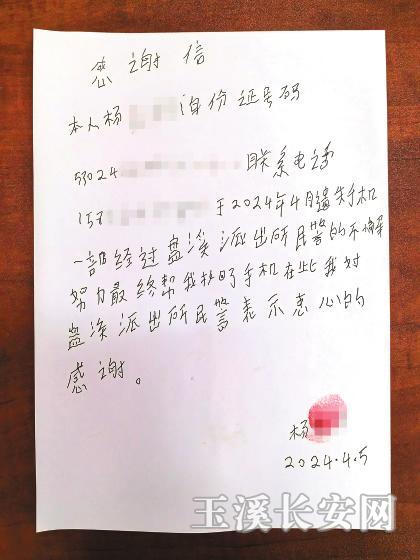 感谢信
本人杨 身份证号码
53024 联系电话
157 于2024年4月遗失手机
一部经过盘溪派出所民警的不懈
努力最终帮我找回了手机在此我对
盘溪派出所民警表示衷心的
感谢。
杨
2024.4.5
玉溪长安网